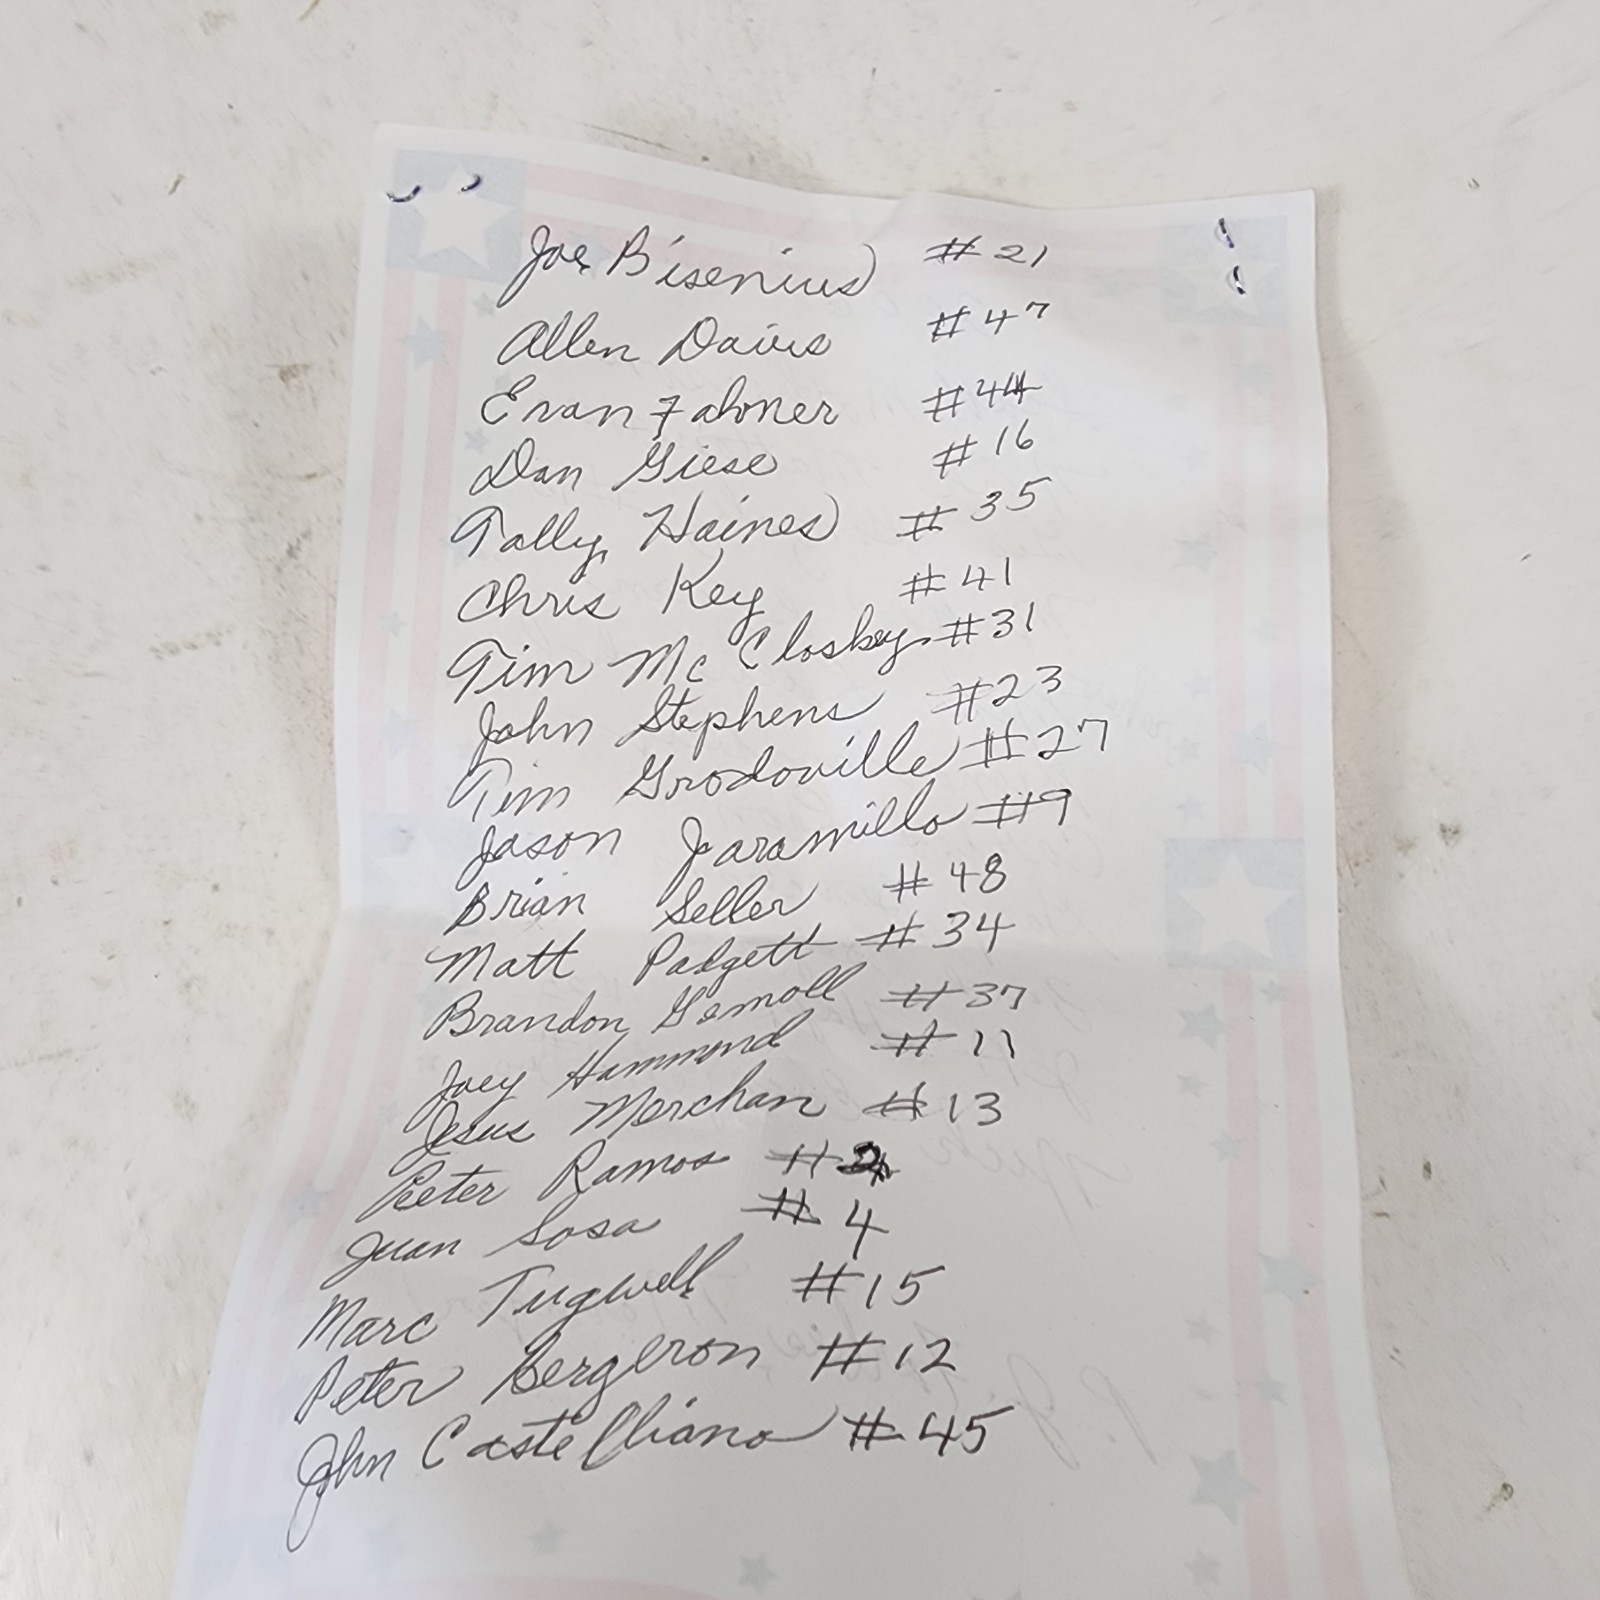 Joe Bisenius #21
Allen Davis #47
Evan Fahner #44
Dan Giese #16
Tally Haines #35
Chris Key #41
Tim McCloskey #31
John Stephens #23
Tim Grodoville #27
Jason Jaramillo #9
Brian Seller #48
Matt Padgett #34
Brandon Gemoll #37
Joey Hammond #11
Jesus Merchan #13
Peeter Ramos #
Juan Sosa #4
Marc Tugwell #15
Peter Bergeron #12
John Castelliano #45